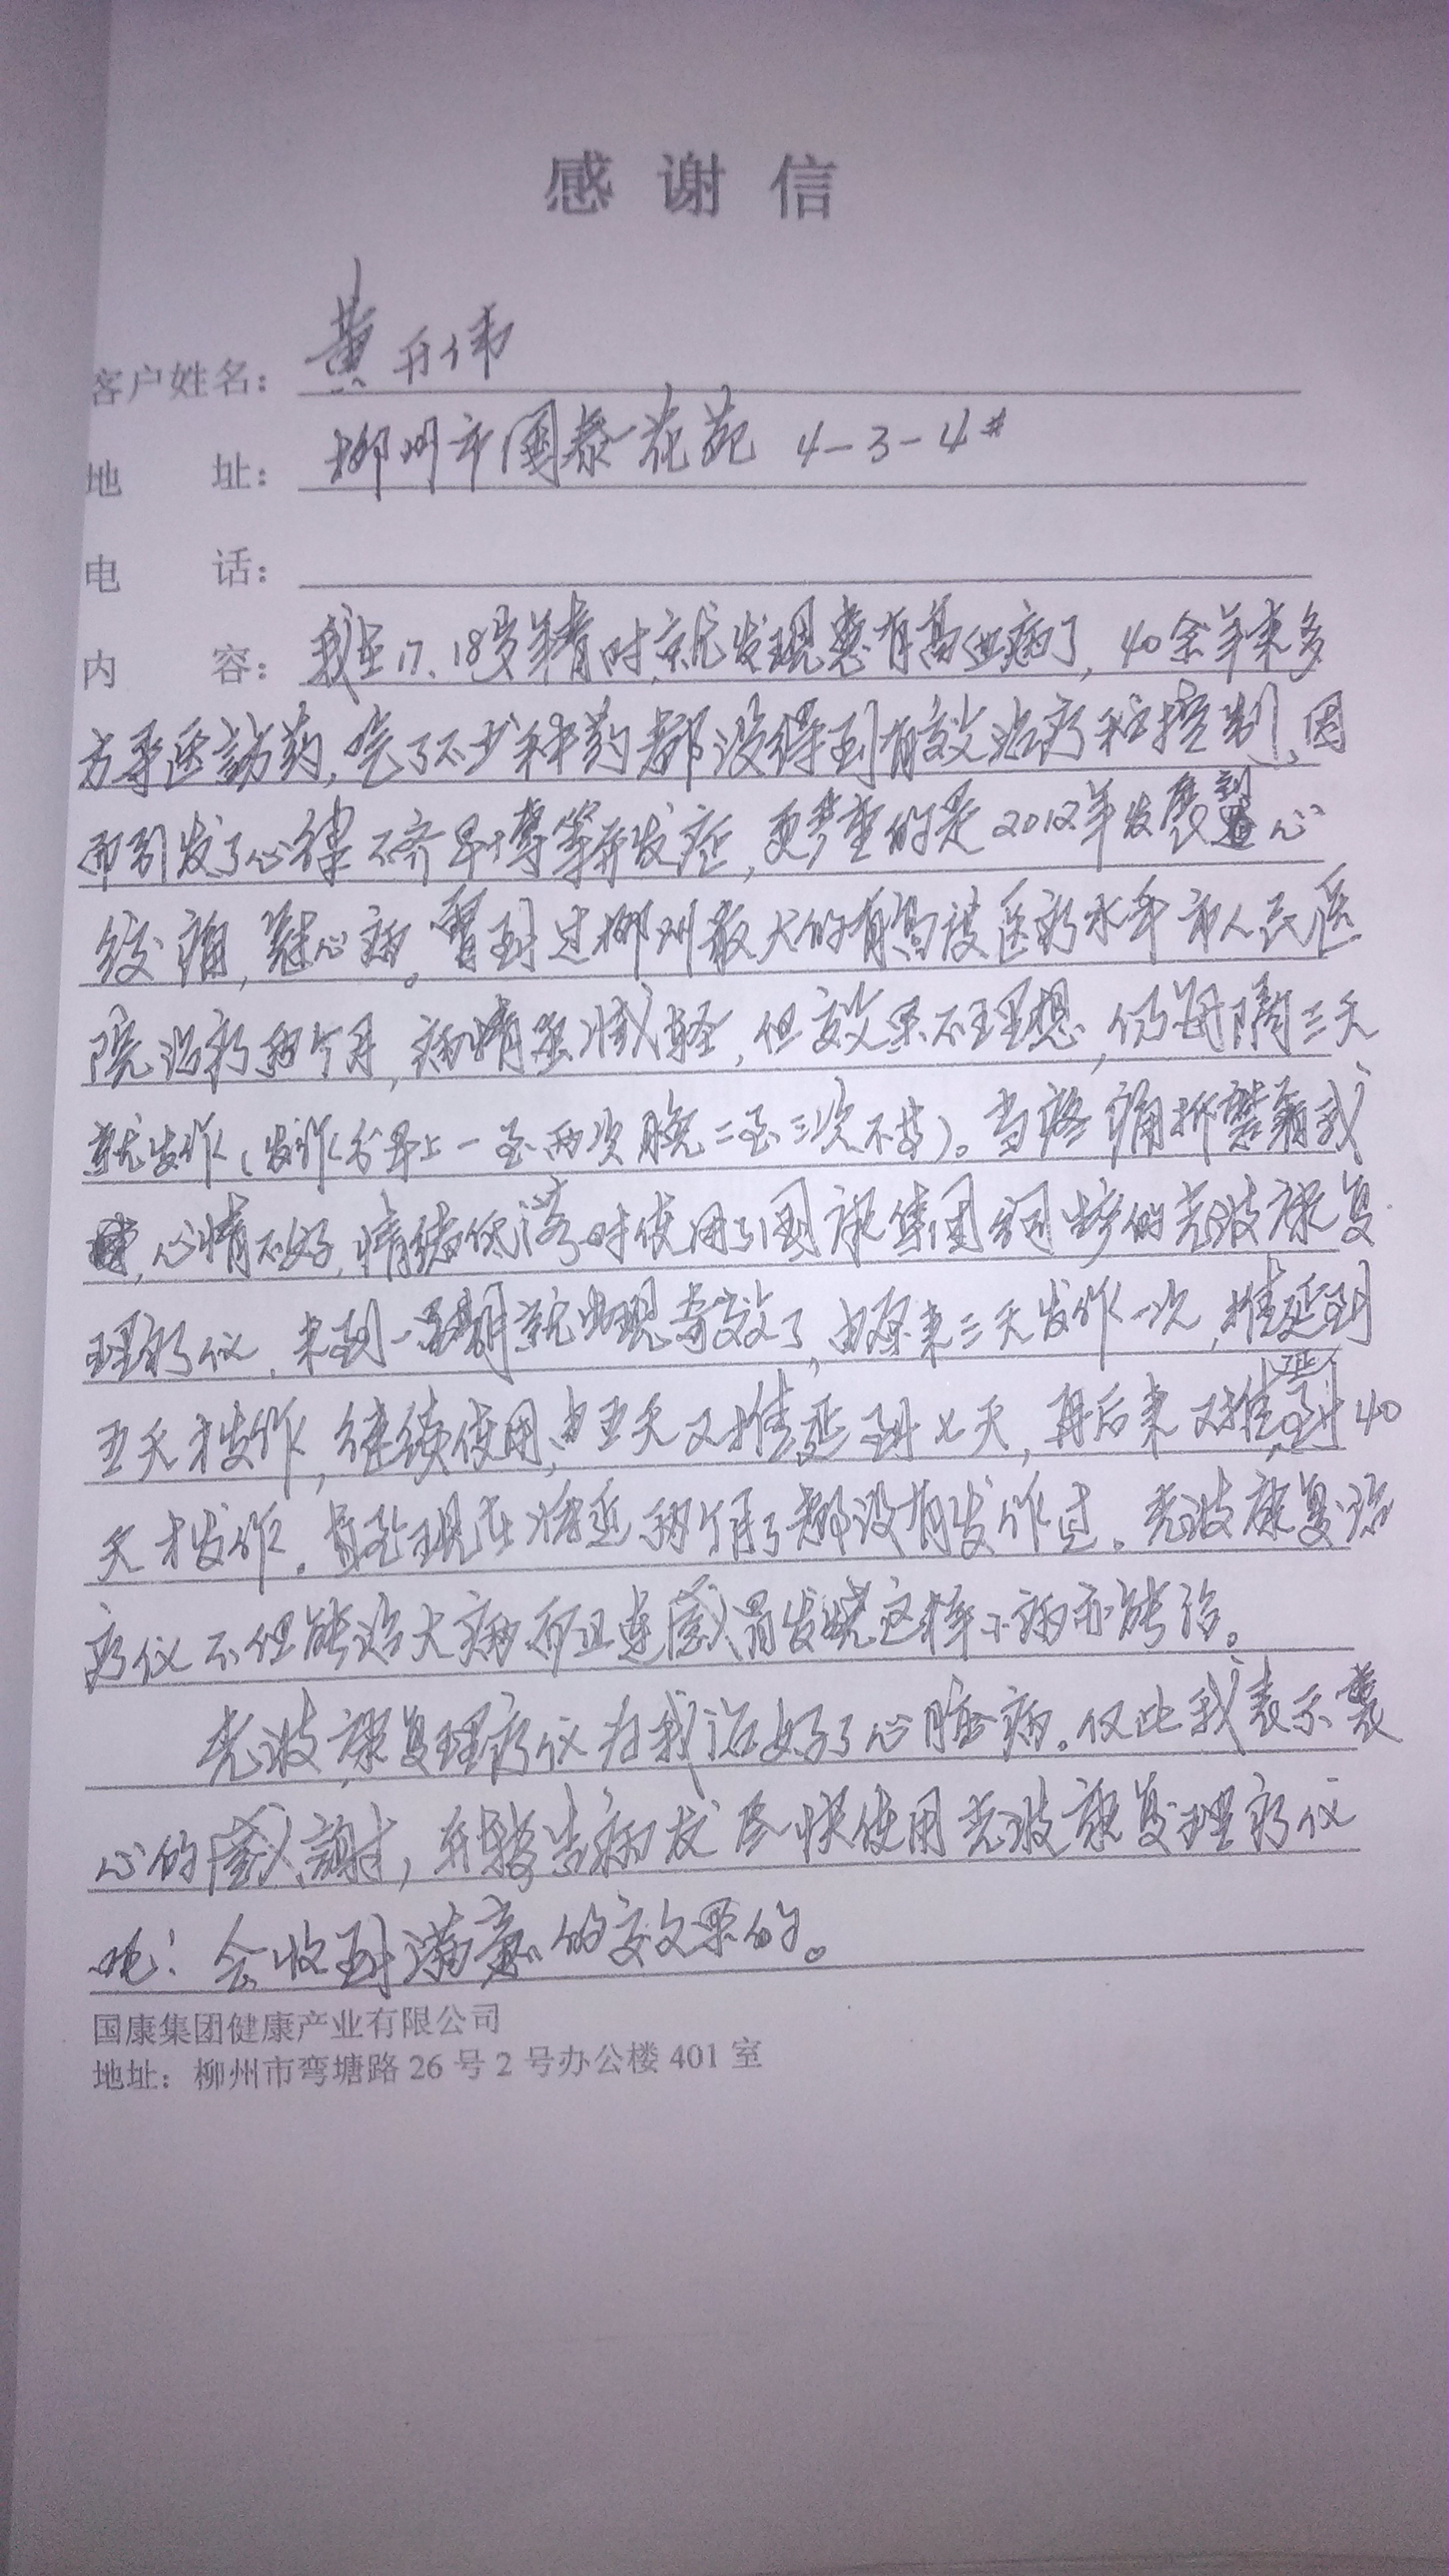 感谢信
客户姓名：黄升伟
地 址：柳州市国泰花苑 4-3-4#
电 话：
内 容：我在17、18岁年青时就发现患有高血病了，40余年来多
方寻医访药，吃了不少种药都没得到有效治疗和控制，因
而引发了心律不齐早搏等并发症，更严重的是2012年发展到心
绞痛，冠心病。曾到过柳州最大的有高度医疗水平市人民医
院治疗两个月，病情虽减轻，但效果不理想，仍每隔三天
就发作（发作分早上一至两次晚二至三次不等）。当疼痛折磨着我
，心情不好，情绪低落时使用了国康集团公司生产的光波康复
理疗仪，未到一星期就出现奇效了，由原来三天发作一次，推延到
五天才发作，继续使用，由五天又推延到七天，再后来又推延到40
天才发作。直至现在将近两个月了都没有发作过。光波康复治
疗仪不但能治大病而且连感冒发烧这样小病亦能治。
光波康复理疗仪为我治好了心脏病。仅此我表示衷
心的感谢，并转告病友尽快使用光波康复理疗仪
吧！会收到满意的效果的。
国康集团健康产业有限公司
地址：柳州市弯塘路26号2号办公楼401室